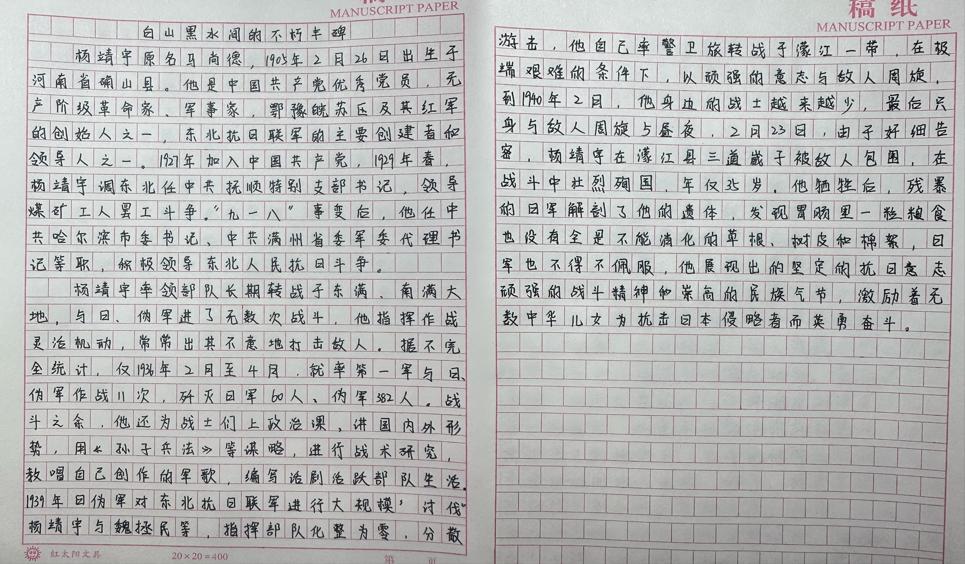 稿
MANUSCRIPT PAPER
白山黑水间的不朽丰碑
杨靖宇原名马尚德，1905年2月26日出生于
河南省确山县。他是中国共产党优秀党员，无
产阶级革命家、军事家，鄂豫皖苏区及其红军
的创始人之一，东北抗日联军的主要创建者和
领导人之一。1927年加入中国共产党，1929年春，
杨靖宇调东北任中共抚顺特别支部书记，领导
煤矿工人罢工斗争。“九一八”事变后，他任中
共哈尔滨市委书记、中共满州省委军委代理书
记等职，积极领导东北人民抗日斗争。
杨靖宇率领部队长期转战于东满、南满大
地，与日、伪军进了无数次战斗，他指挥作战
灵活机动，常常出其不意地打击敌人。据不完
全统计，仅1936年2月至4月，就率第一军与日、
伪军作战11次，歼灭日军60人、伪军382人。战
斗之余，他还为战士们上政治课、讲国内外形
势，用《孙子兵法》等谋略，进行战术研究，
教唱自己创作的军歌，编写话剧活跃部队生活。
1939年日伪军对东北抗日联军进行大规模“讨伐”
杨靖宇与魏拯民等，指挥部队化整为零，分散
红太阳文具
20×20=400
第 页
稿纸
MANUSCRIPT PAPER
游击，他自己率警卫旅转战于濛江一带，在极
端艰难的条件下，以顽强的意志与敌人周旋，
到1940年2月，他身边的战士越来越少，最后只
身与敌人周旋5昼夜，2月23日，由于奸细告
密，杨靖宇在濛江县三道崴子被敌人包围，在
战斗中壮烈殉国，年仅35岁。他牺牲后，残暴
的日军解剖了他的遗体，发现胃肠里一粒粮食
也没有全是不能消化的草根、树皮和棉絮，日
军也不得不佩服，他展现出的坚定的抗日意志
顽强的战斗精神和崇尚的民族气节，激励着无
数中华儿女为抗击日本侵略者而英勇奋斗。